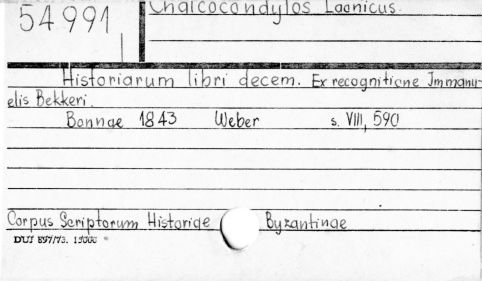 54991
Chalcocondylos Laonicus.
Historiarum libri decem. Ex recognitione Immanu-
elis Bekkeri.
Bonnae 1843 Weber s. VIII, 590
Corpus Scriptorum Historiae Byzantinae
DUJ 897/73. 15000